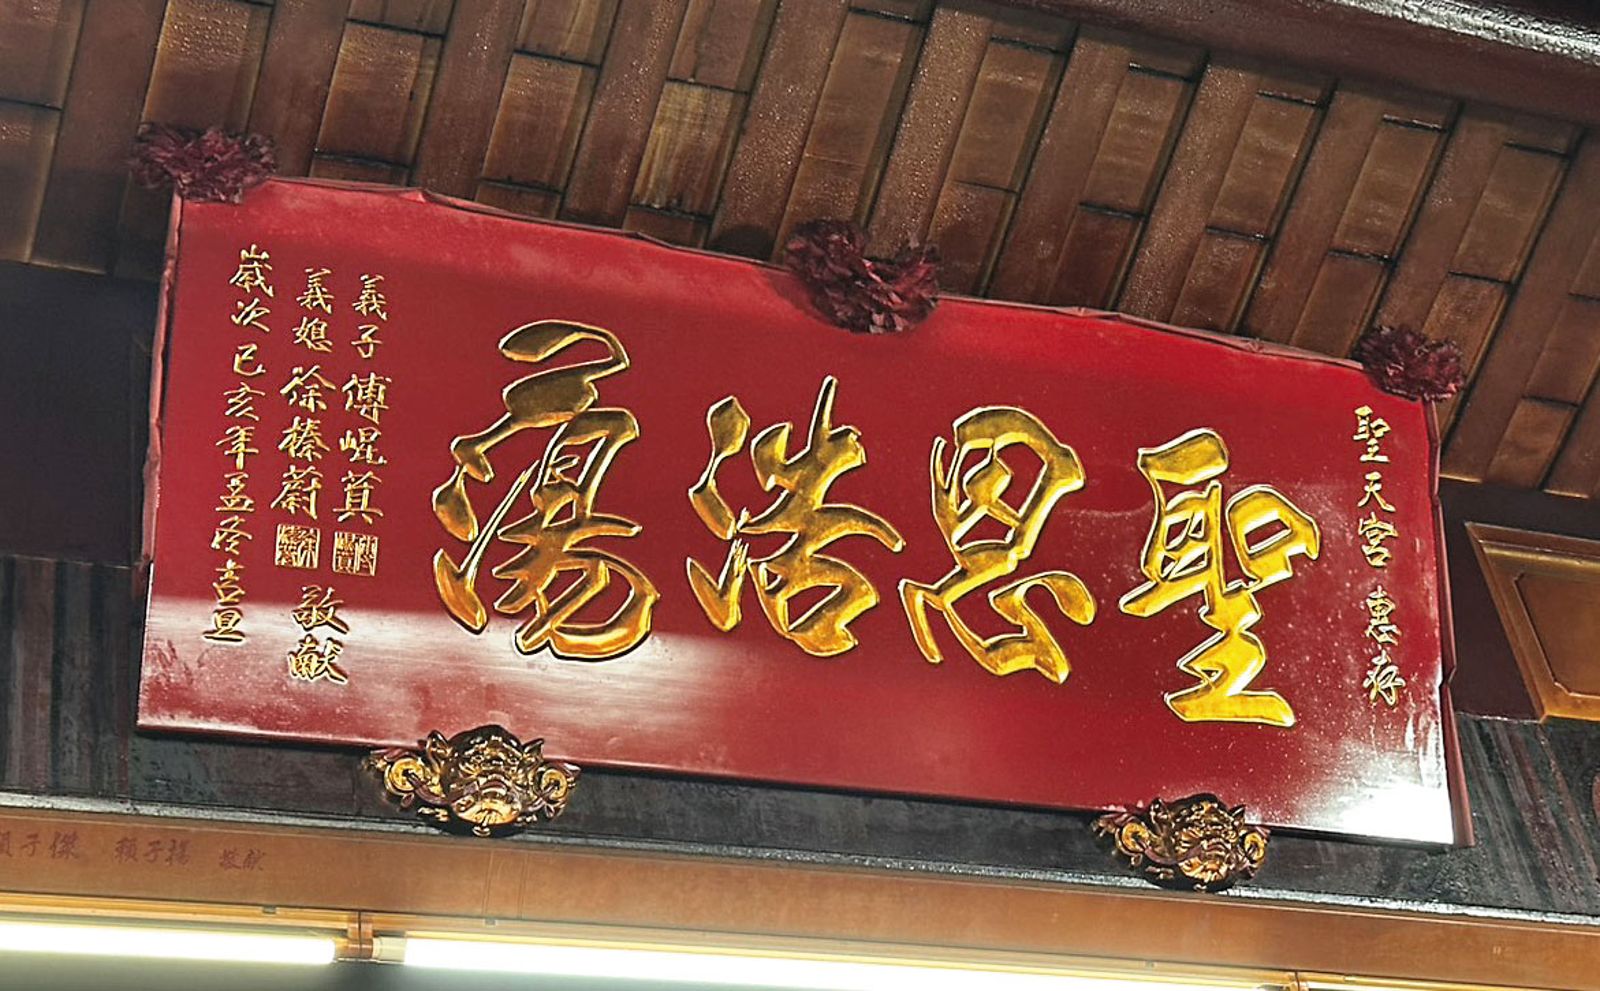 聖天宮 惠存
聖恩浩蕩
義子 傅崐萁
義媳 徐榛蔚
敬献
歲次己亥年孟冬吉旦
子傑 賴子揚 敬献